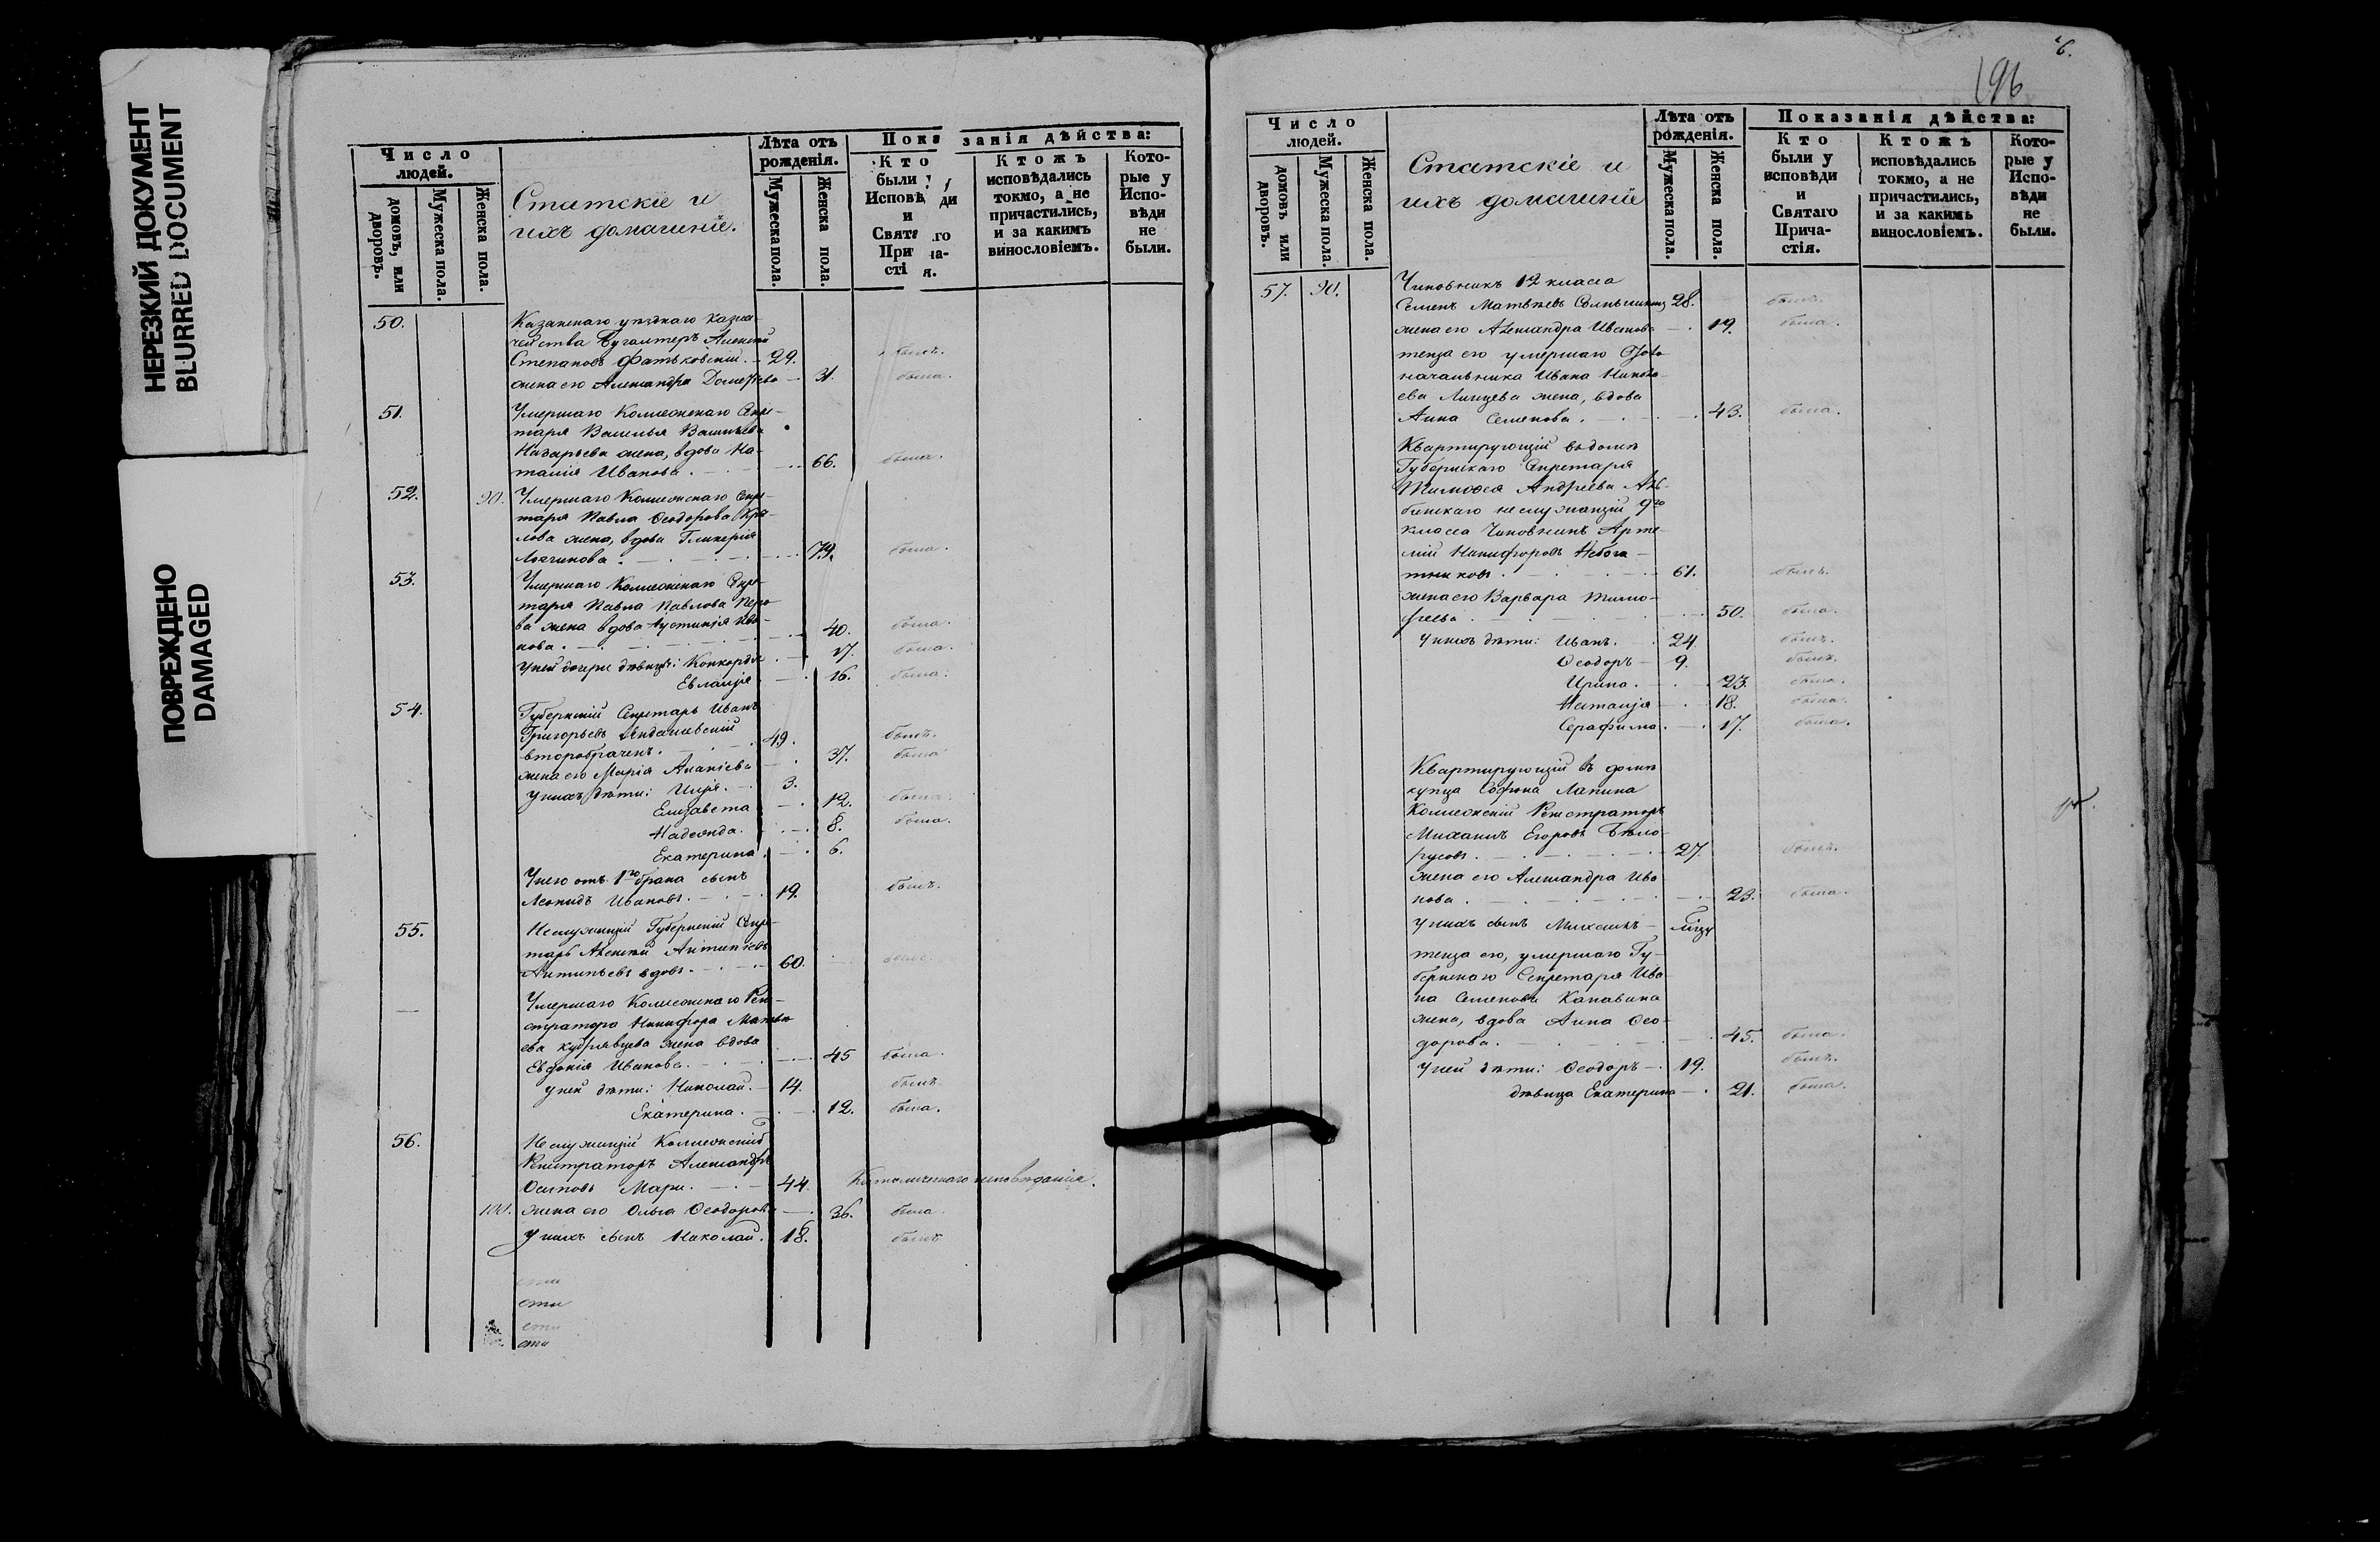 НЕРЕЗКИЙ ДОКУМЕНТ
BLURRED DOCUMENT
ПОВРЕЖДЕНО
DAMAGED
Число людей.
домовъ, или дворовъ.
Мужеска пола.
Женска пола.
Статскіе и
ихъ домашніе.
Лѣта отъ рожденія.
Мужеска пола.
Женска пола.
Показанія дѣйства:
Кто были у Исповѣди и Святаго Причастія.
Ктожъ исповѣдались токмо, а не причастились, и за какимъ винословіемъ.
Которые у Исповѣди не были.
50. Казанскаго уѣзднаго Казна-
чейства Бухгалтеръ Алексѣй
Степановъ 29. былъ.
жена его Александра 31. была.
51. Умершаго Коллежскаго Секре-
таря Василья Васильева
Назарьева жена, вдова На-
талія Иванова. 66. была.
52. 90. Умершаго Коллежскаго Секре-
таря Павла Ѳеодорова
жена, вдова Гликерія
Логинова. 74. была.
53. Умершаго Коллежскаго Секре-
таря Павла Павлова Перо-
ва жена вдова Іустинія Ива-
нова. 40. была.
У ней дочери дѣвицы: Конкордія 17. была.
Евлампія 16. была.
54. Губернскій Секретарь Иванъ
Григорьевъ
второбраченъ. 49. былъ.
жена его Марія Ананіева 37. была
У нихъ дѣти: Илія. 3.
Елизавета 12. была.
Надежда. 8. была.
Екатерина. 6.
У него отъ 1го брака сынъ
Леонидъ Ивановъ. 19. былъ.
55. Неслужащій Губернскій Секре-
тарь Алексѣй Антипьевъ
Антипьевъ вдовъ. 60. былъ.
— Умершаго Коллежскаго Реги-
стратора Никифора Матвѣ-
ева Кудрявцева жена вдова
Евдокія Иванова. 45 была.
у ней дѣти: Николай. 14. былъ.
Екатерина. 12. была.
56. Неслужащій Коллежскій
Регистраторъ Александръ
Осиповъ Мари. 44. Католическаго исповѣданія.
100. жена его Ольга Ѳеодорова 36. была.
У нихъ сынъ Николай. 18. былъ
6.
196
Число людей.
домовъ или дворовъ.
Мужеска пола.
Женска пола.
Статскіе и
ихъ домашніе
Лѣта отъ рожденія.
Мужеска пола.
Женска пола.
Показанія дѣйства:
Кто были у исповѣди и Святаго Причастія.
Ктожъ исповѣдались токмо, а не причастились, и за какимъ винословіемъ.
Которые у Исповѣди не были.
57. 90. Чиновникъ 12 класса
Семенъ Матвѣевъ 28. былъ.
жена его Александра Иванова 19. была.
теща его умершаго Обо-
начальника Ивана Никола-
ева жена, вдова
Анна Семенова. 43. была.
Квартирующій въ домѣ
Губернскаго Секретаря
Тимоѳея Андреева
неслужащій 9го
класса Чиновникъ Арте-
мій Никифоровъ Небога-
тиковъ. 61. былъ.
жена его Варвара Тимо-
ѳеева. 50. была.
У нихъ дѣти: Иванъ. 24. былъ.
Ѳеодоръ 9. былъ.
Ирина. 23. была.
Наталія 18. была.
Серафима. 17. была.
Квартирующій въ домѣ
купца Софона Лапина
Коллежскій Регистраторъ
Михаилъ Егоровъ Бѣло-
русовъ. 27. былъ.
жена его Александра Ива-
нова. 23. была.
У нихъ сынъ Михаилъ
теща его, умершаго Гу-
бернскаго Секретаря Ива-
на Семенова Канавина
жена, вдова Анна Ѳео-
дорова. 45. была.
У ней дѣти: Ѳеодоръ 19. былъ.
дѣвица Екатерина 21. была.